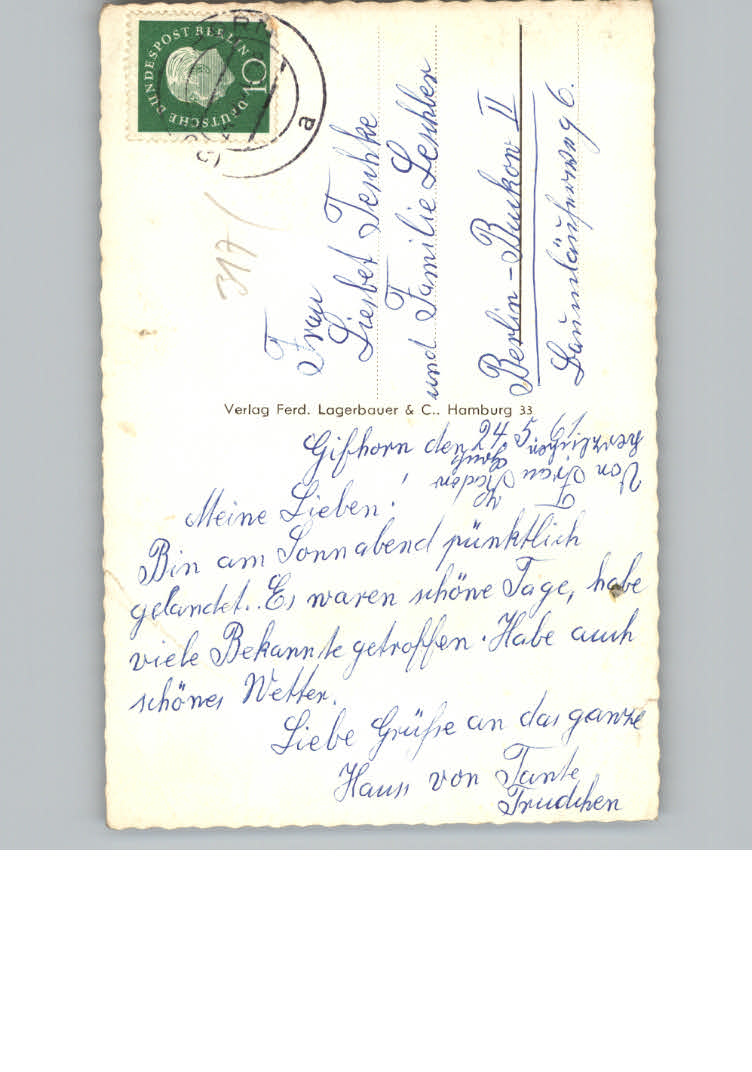 DEUTSCHE BUNDESPOST BERLIN
10
a
317
Frau
Liesbet Teschke
und Familie Leschber
Berlin - Buckow II
Baumläuferweg 6.
Verlag Ferd. Lagerbauer & C.. Hamburg 33
Gifhorn den 24. 5. 61
Meine Lieben!
Bin am Sonnabend pünktlich
gelandet. Es waren schöne Tage, habe
viele Bekannte getroffen. Habe auch
schönes Wetter.
Liebe Grüße an das ganze
Haus von Tante
Trudchen
Von Frau
herzlichen Gruß